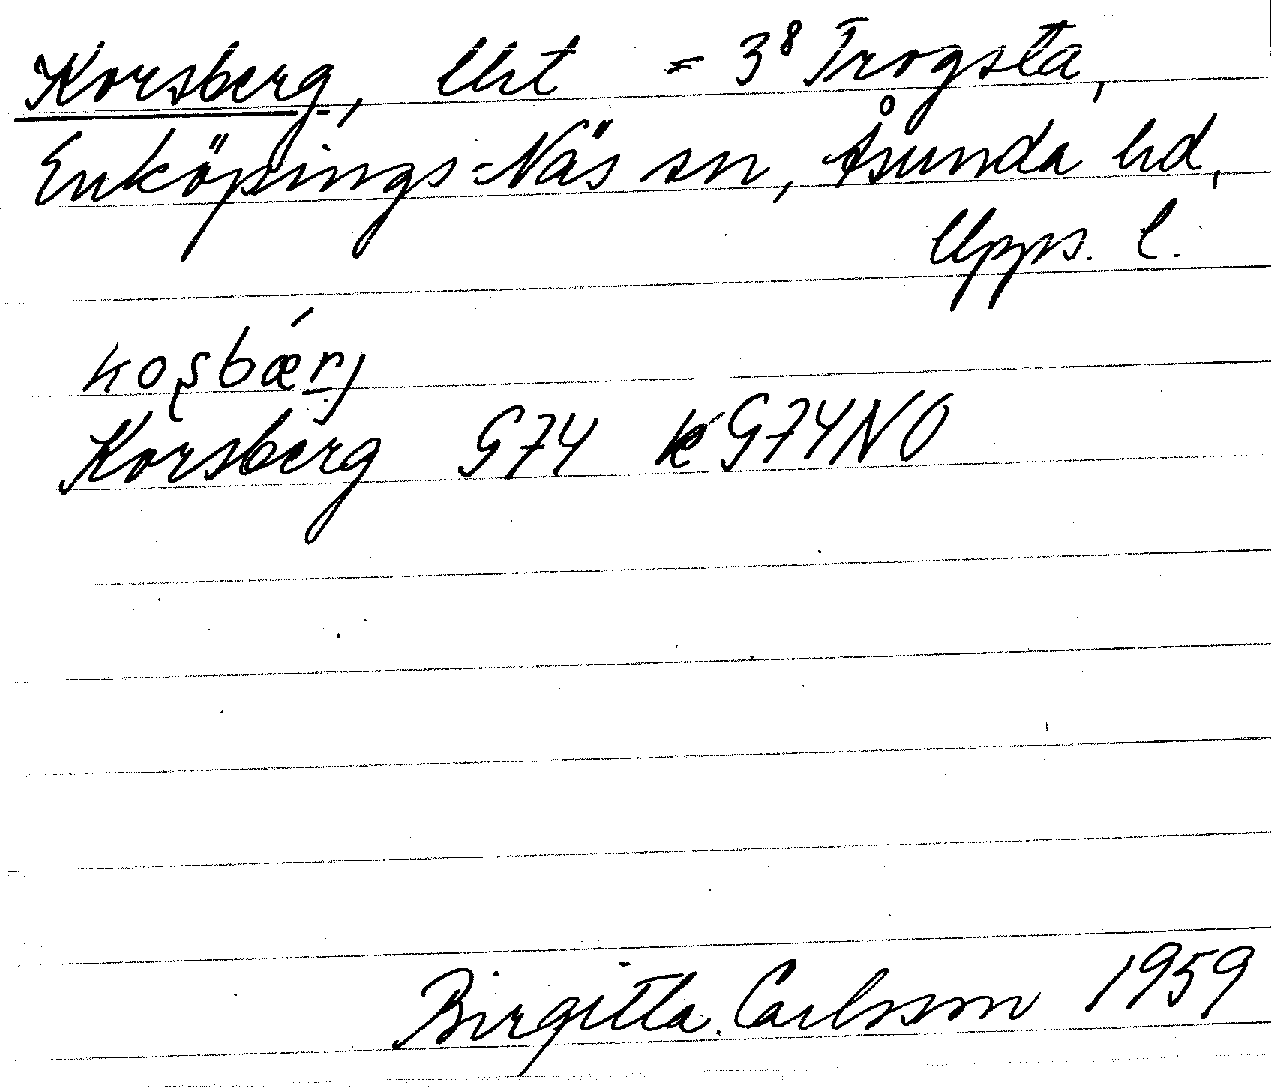 Korsberg, lht = 3⁸ Trogsta,
Enköpings-Näs sn, Åsunda hd,
Upps. l.
koʂbærj
Korsberg G74 ek G74NO
Birgitta Carlsson 1959